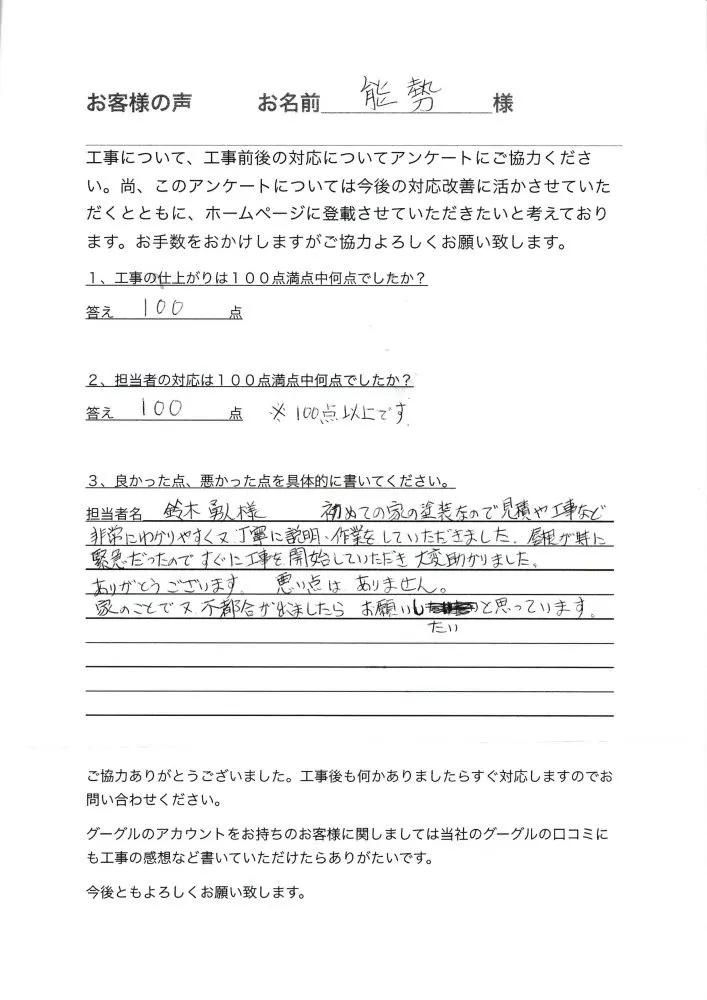 お客様の声 お名前 能勢 様
工事について、工事前後の対応についてアンケートにご協力くださ
い。尚、このアンケートについては今後の対応改善に活かさせていた
だくとともに、ホームページに登載させていただきたいと考えており
ます。お手数をおかけしますがご協力よろしくお願い致します。
1、工事の仕上がりは100点満点中何点でしたか？
答え 100 点
2、担当者の対応は100点満点中何点でしたか？
答え 100 点 ※100点以上です
3、良かった点、悪かった点を具体的に書いてください。
担当者名 鈴木 勇人様 初めての家の塗装なので見積や工事など
非常にわかりやすく又丁寧に説明、作業をしていただきました。屋根が特に
緊急だったのですぐに工事を開始していただき大変助かりました。
ありがとうございます。 悪い点はありません。
家のことで又不都合が出ましたら お願いし と思っています。
たい
ご協力ありがとうございました。工事後も何かありましたらすぐ対応しますのでお
問い合わせください。
グーグルのアカウントをお持ちのお客様に関しましては当社のグーグルの口コミに
も工事の感想など書いていただけたらありがたいです。
今後ともよろしくお願い致します。